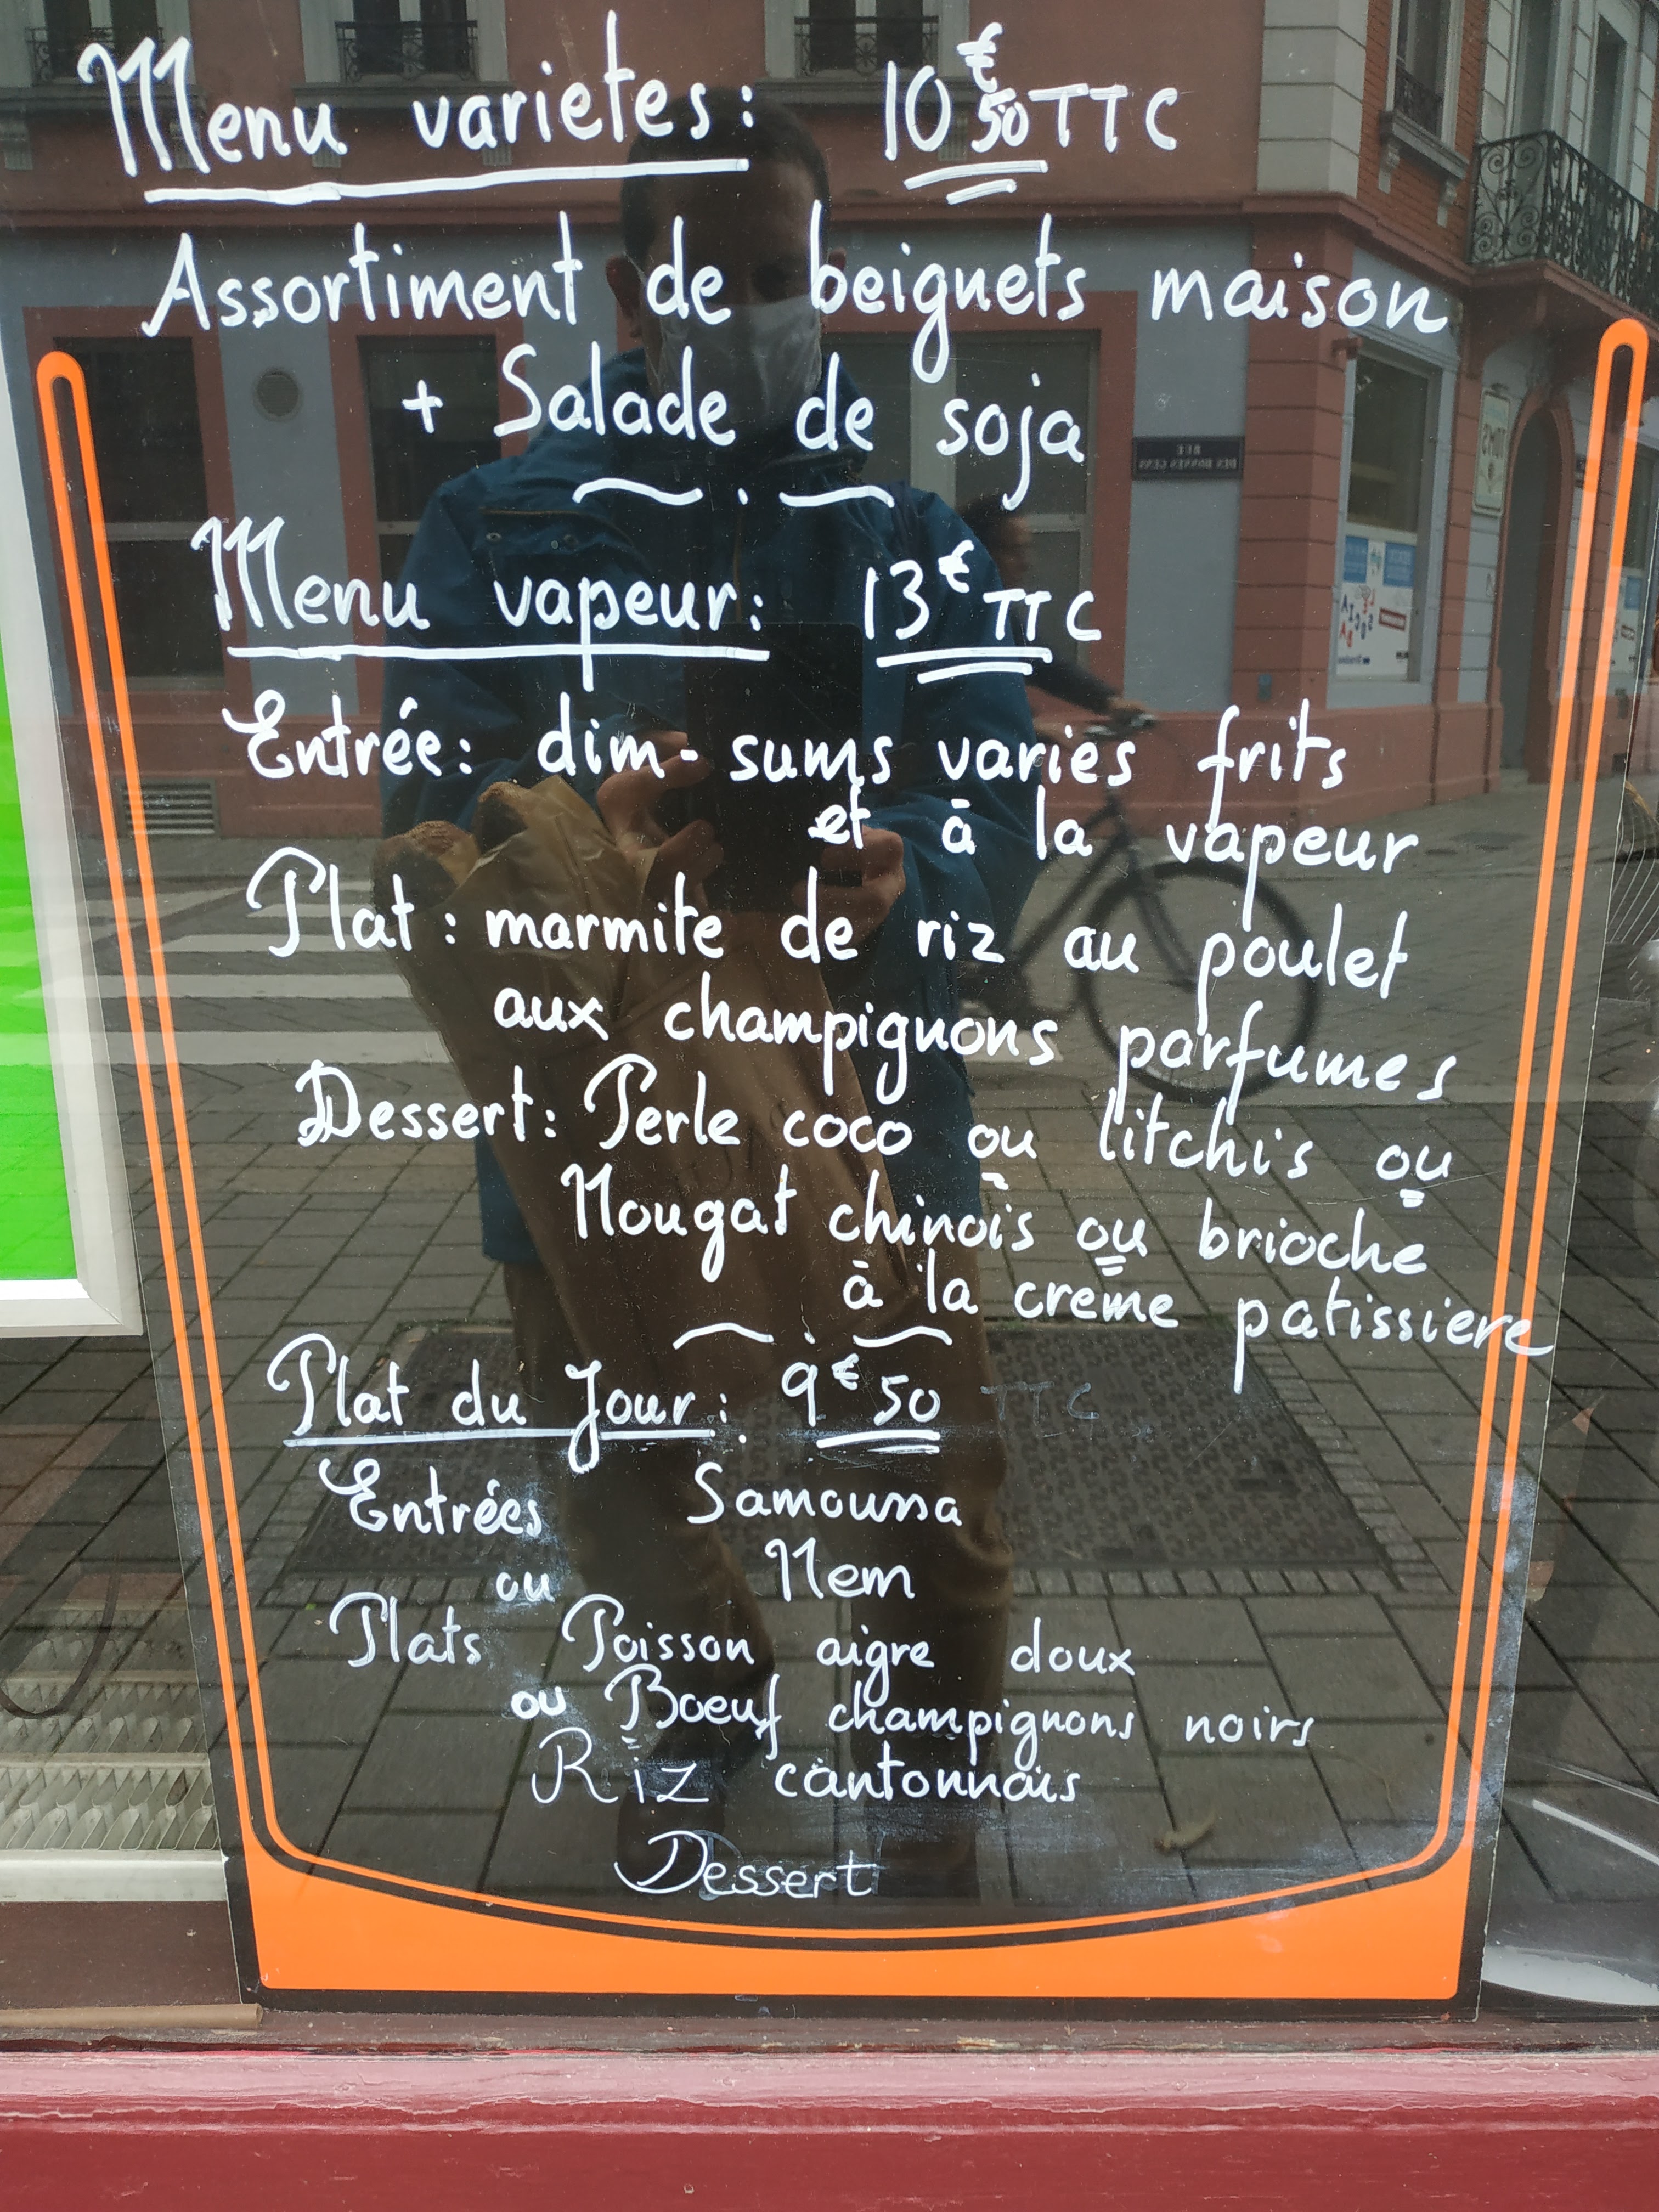 Menu varietes: 10€50 TTC
Assortiment de beignets maison
+ Salade de soja
Menu vapeur: 13€ TTC
Entrée: dim-sums varies frits
et à la vapeur
Plat: marmite de riz au poulet
aux champignons parfumes
Dessert: Perle coco ou litchis ou
Nougat chinois ou brioche
à la creme patissiere
Plat du Jour: 9€50 TTC
Entrées Samoussa
ou Nem
Plats Poisson aigre doux
ou Boeuf champignons noirs
Riz cantonnais
Dessert
RUE
DES BONNES GENS